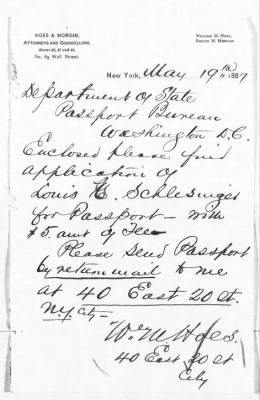 HOES & MORGAN,
ATTORNEYS AND COUNSELLORS,
No. 69 Wall Street.
WILLIAM M. HOES,
New York, May 19th 1887
Department of State
Passport Bureau
Washington D.C.
Enclosed please find
application of
Louis H. Schlesinger
for Passport — with
$5. amt of Fee
Please Send Passport
by return mail to me
at 40 East 20 St.
N.Y. City —
Wm M Hoes.
40 East 20 St
City